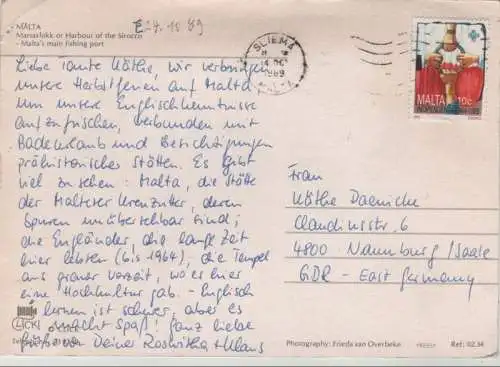 MALTA
Marsaxlokk or Harbour of the Sirocco
- Malta's main fishing port
E 24.10.89
SLIEMA
14 OC
1989
MALTA
MALTA 10c
Liebe Tante Käthe, wir verbringen
unsere Herbstferien auf Malta
um unsere Englischkenntnisse
aufzufrischen, verbunden mit
Badeurlaub und Besichtigungen
prähistorischer Stätten. Es gibt
viel zu sehen: Malta, die Stätte
der Malteser Kreuzritter, deren
Spuren unübersehbar sind;
die Engländer, die lange Zeit
hier lebten (bis 1964), die Tempel
aus grauer Vorzeit, wo es hier
eine Hochkultur gab. - Englisch
lernen ist schwer, aber es
macht Spaß! Ganz liebe
Grüße von Deiner Roswitha + Klaus
Frau
Käthe Daenicke
Claudiusstr. 6
4800 Naumburg/Saale
GDR - East Germany
Photography: Frieda van Overbeke
Ref: 02.34